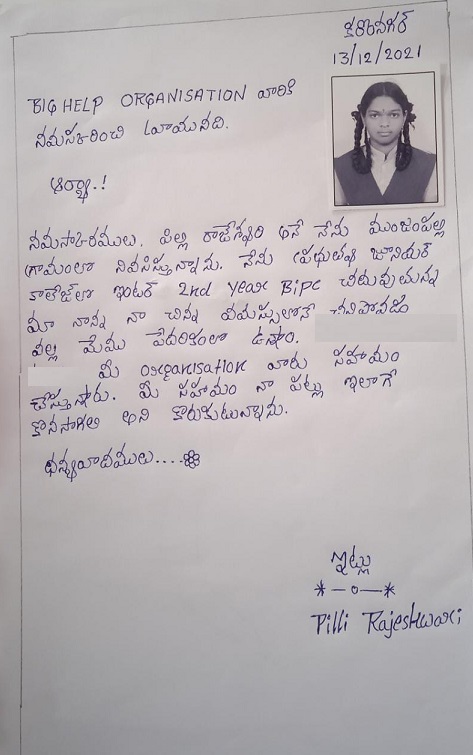 కరీంనగర్
13/12/2021
BIG HELP ORGANISATION వారికి
నమస్కరించి వ్రాయునది.
ఆర్యా.!
నమస్కారములు. పిల్లి రాజేశ్వరి అనే నేను ముంజంపల్లి
గ్రామంలో నివసిస్తున్నాను. నేను ప్రభుత్వ జూనియర్
కాలేజ్‌లో ఇంటర్ 2nd year BiPC చదువుతున్న
మా నాన్న నా చిన్న వయస్సులోనే చనిపోవడం
వల్ల మేము పేదరికంలో ఉన్నాం.
మీ organisation వారు సహాయం
చేస్తున్నారు. మీ సహాయం నా పట్ల ఇలాగే
కొనసాగాలి అని కోరుకుటున్నాను.
ధన్యవాదములు....
ఇట్లు
Pilli Rajeshwari